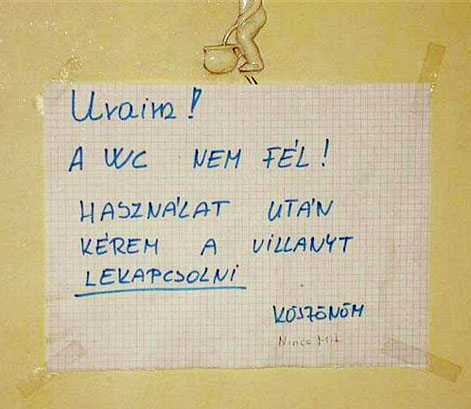 Uraim!
A WC NEM FÉL!
HASZNÁLAT UTÁN
KÉREM A VILLANYT
LEKAPCSOLNI
KÖSZÖNÖM
Nincs Mit